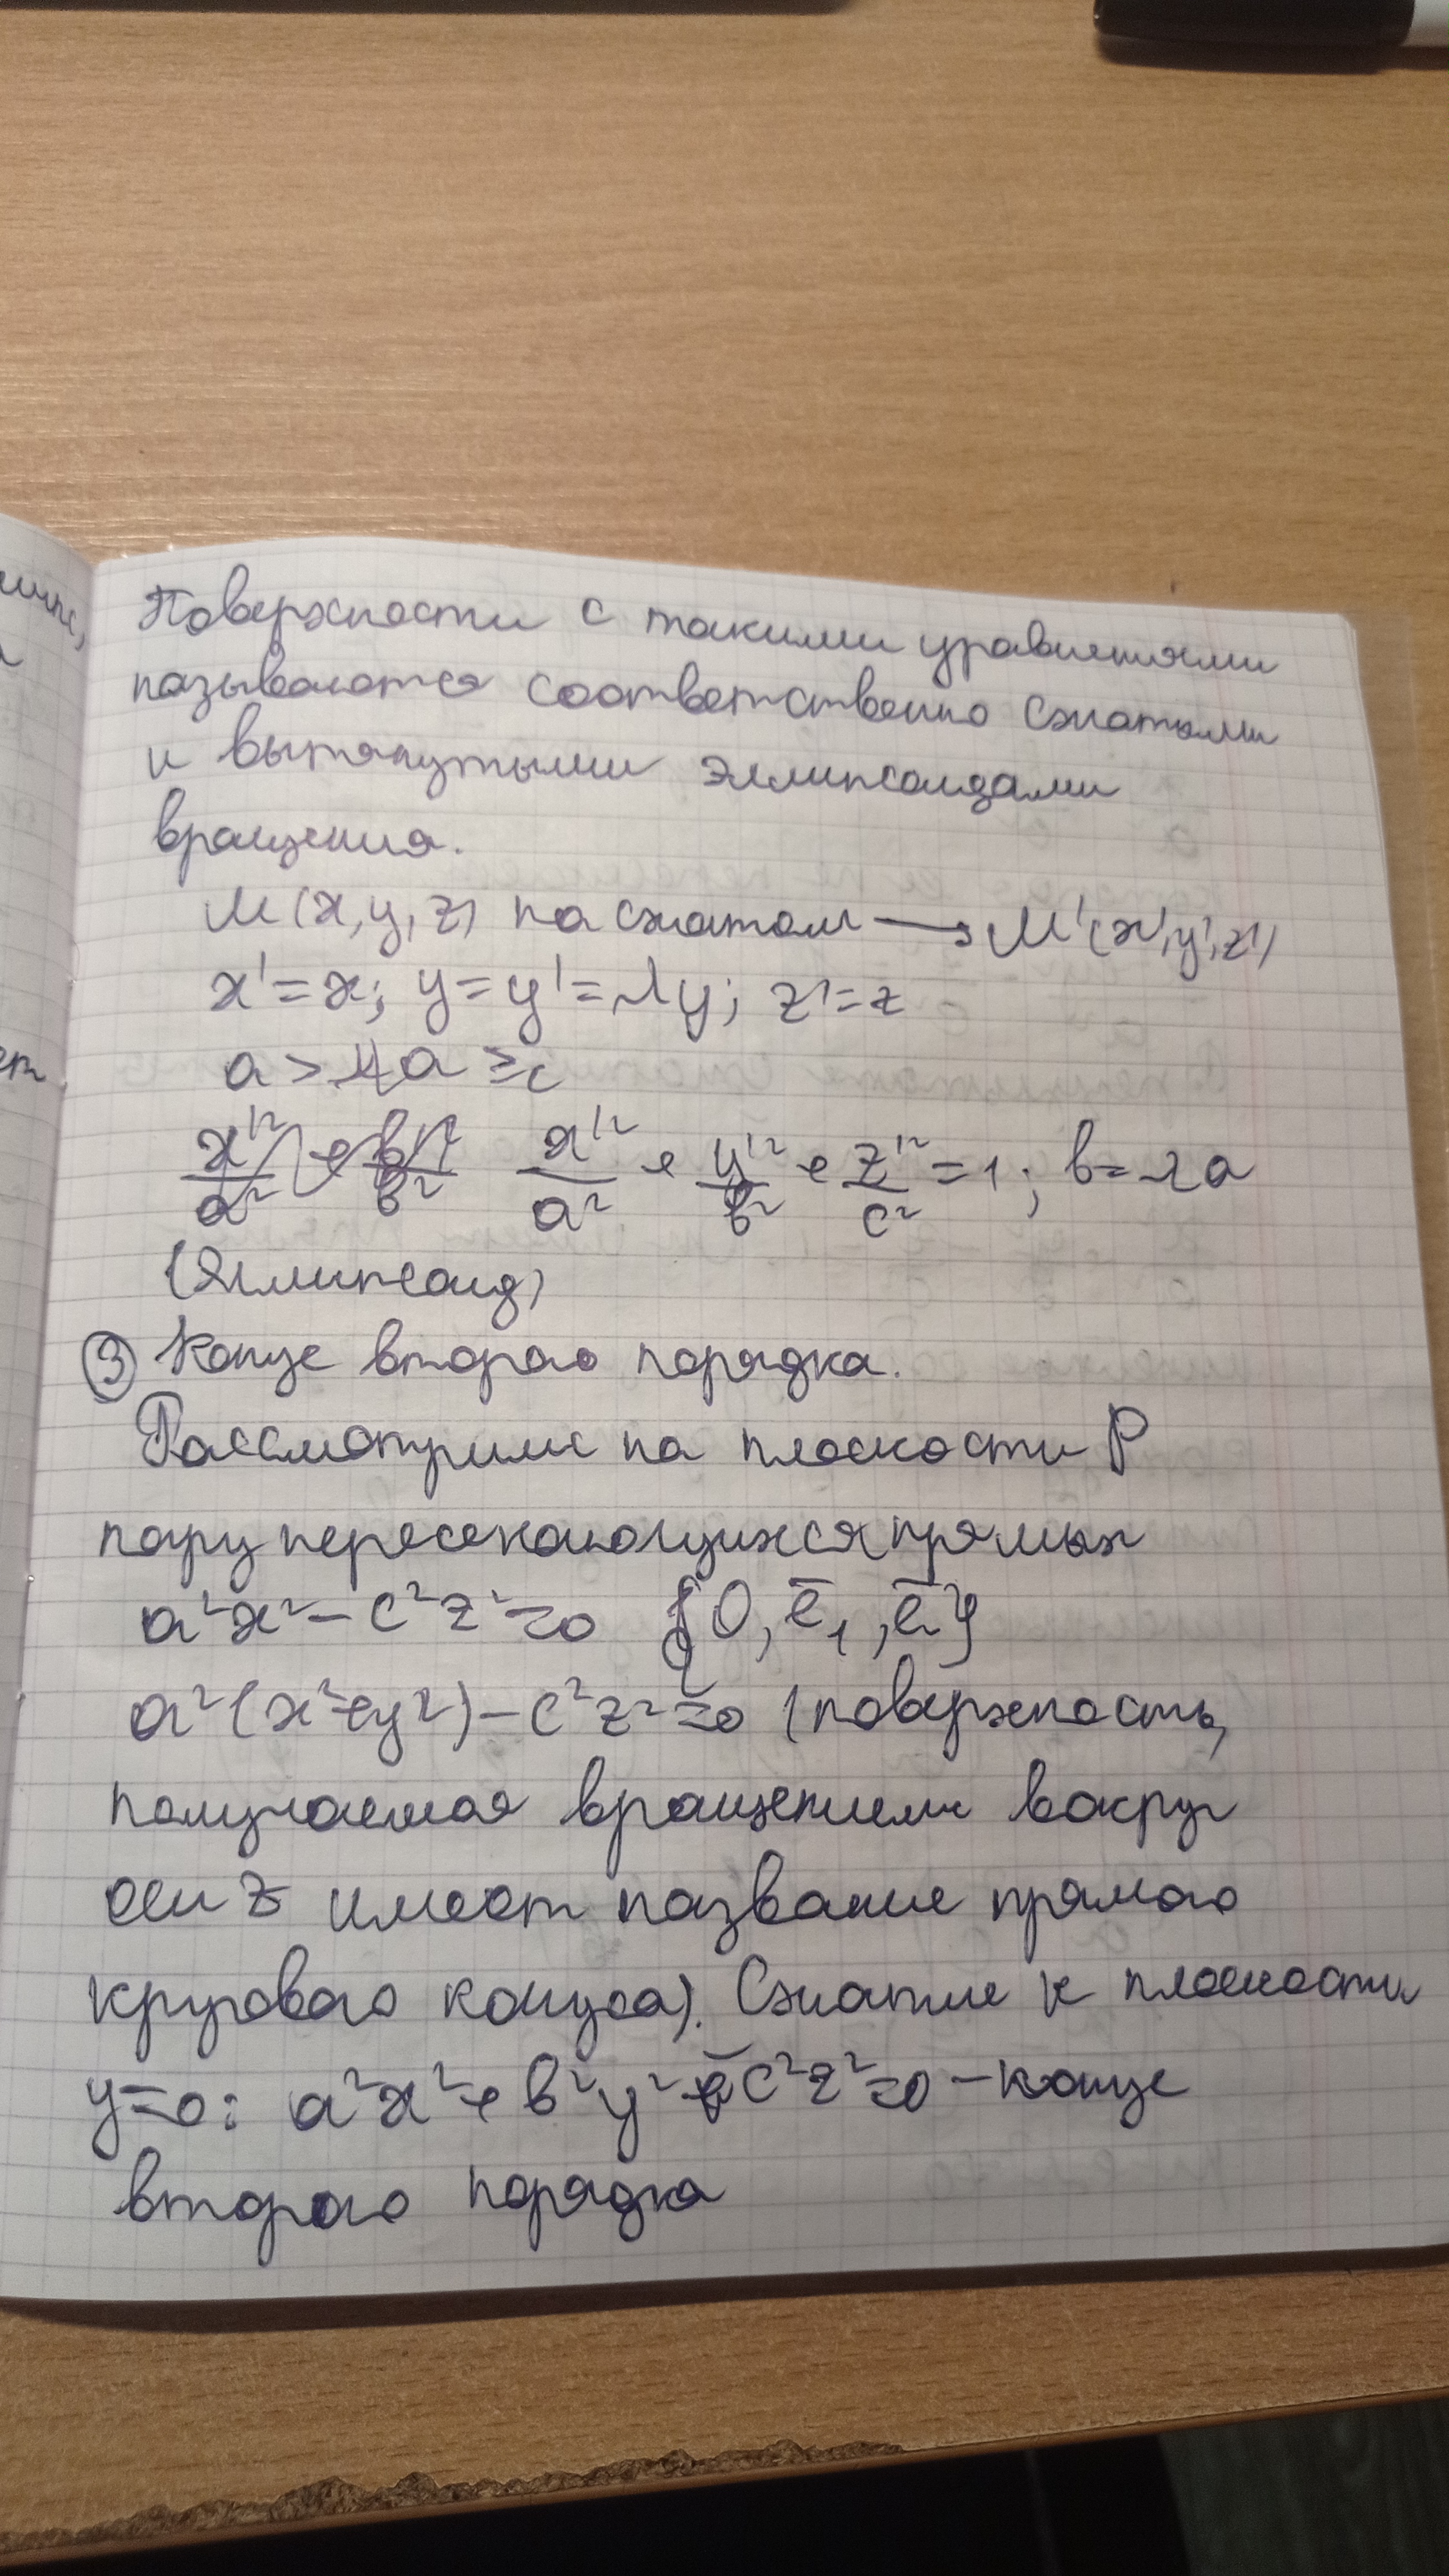 Поверхности с такими уравнениями
называются соответственно сжатыми
и вытянутыми эллипсоидами
вращения.
M(x,y,z) на сжатом → M'(x',y',z')
x'=x; y=y'=λy; z'=z
a > a ≥ c
x'²/a² + y'²/b² + z'²/c² = 1; b=λa
(Эллипсоид)
③ Конус второго порядка.
Рассмотрим на плоскости P
пару пересекающихся прямых
a²x² - c²z² = 0 {O, e̅₁, e̅₂}
a²(x²+y²) - c²z² = 0 (поверхность,
получаемая вращением вокруг
оси z имеет название прямого
кругового конуса). Сжатие к плоскости
y=0: a²x² + b²y² - c²z² = 0 - конус
второго порядка